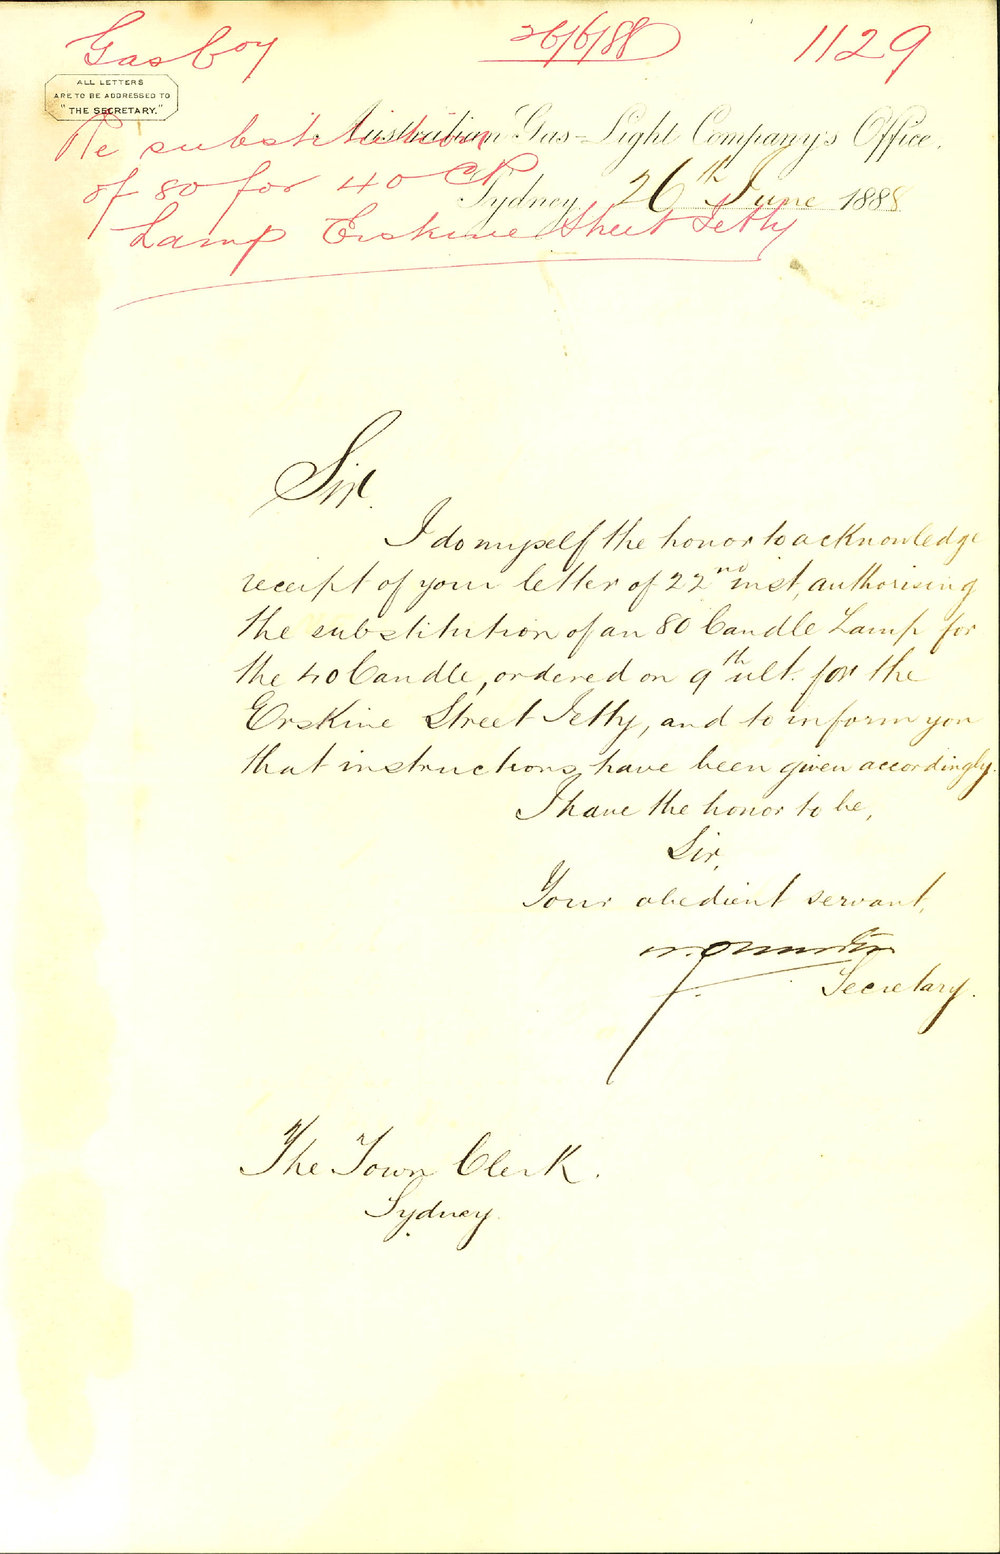 Gas Coy
26/6/88
1129
ALL LETTERS
ARE TO BE ADDRESSED TO
"THE SECRETARY."
Re substitution
of 80 for 40 CP
Lamp Erskine Street Jetty
Australian Gas-Light Company's Office.
Sydney 26th June 1888
Sir.
I do myself the honor to acknowledge
receipt of your letter of 22nd inst, authorising
the substitution of an 80 Candle Lamp for
the 40 Candle, ordered on 9th ult. for the
Erskine Street Jetty, and to inform you
that instructions have been given accordingly.
I have the honor to be,
Sir,
Your obedient servant,
Secretary.
The Town Clerk.
Sydney.